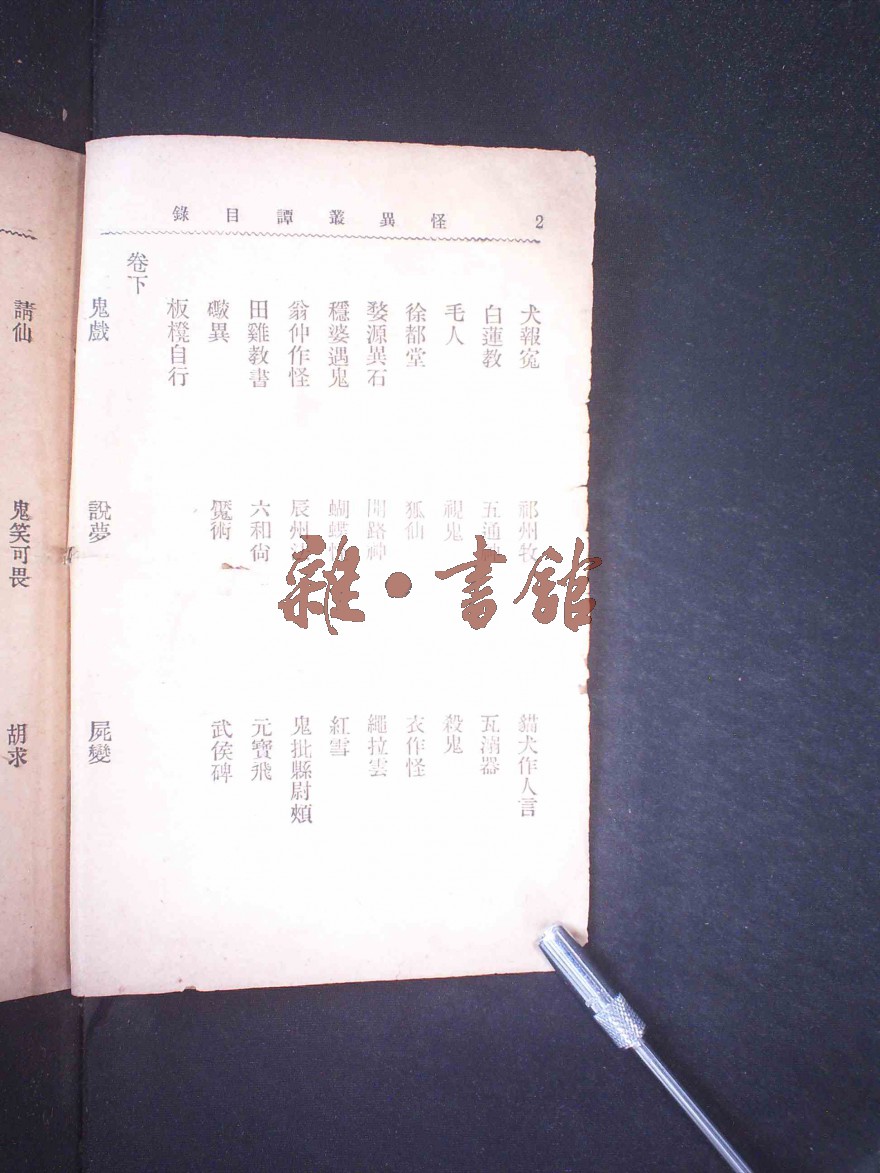 怪異叢譚目錄 2
犬報冤 祁州牧 貓犬作人言
白蓮教 五通 瓦溺器
毛人 視鬼 殺鬼
徐都堂 狐仙 衣作怪
婺源異石 開路神 繩拉雲
穩婆遇鬼 蝴蝶 紅雪
翁仲作怪 辰州 鬼批縣尉頰
田雞教書 六和尙 元寶飛
礮異 魘術 武侯碑
板櫈自行
卷下
鬼戲 說夢 屍變
請仙 鬼笑可畏 胡求
雜·書館